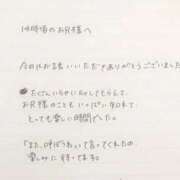 14時頃のお兄様へ
今日はお誘いいただきありがとうございました
たくさんいちゃいちゃしてもらえて、
お兄様のこともいっぱい知れて
とっても楽しい時間でした。
「また、呼ぼうわい」て言ってくれたの
楽しみに待ってます